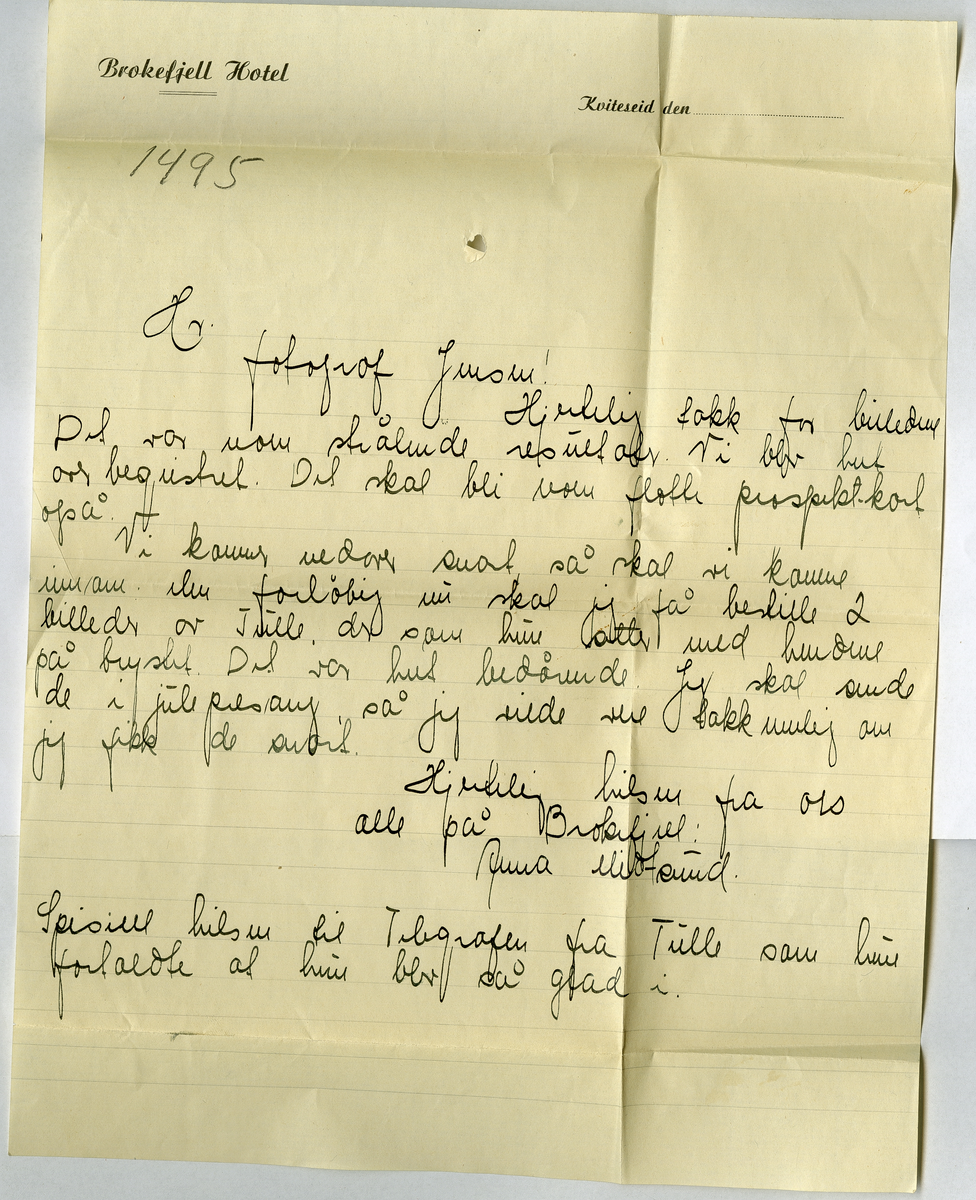 Brokefjell Hotel
Kviteseid den
1495
Hr.
fotograf Jensen!
Hjertelig takk for billedene
Det var noen strålende resultater. Vi blev helt
over begeistret. Det skal bli noen flotte prospekt-kort
også.
Vi kommer nedover snart, så skal vi komme
innom. Men forløbig nu skal jeg få bestille 2
billeder av Tulle, der som hun sitter med hendene
på brystet. Det var helt bedårende. Jeg skal sende
de i julepresang, så jeg vilde være takknemlig om
jeg fikk de snart.
Hjertelig hilsen fra oss
alle på Brokefjell:
Anna Midtsund.
Spesiell hilsen til Telegrafen fra Tulle som hun
fortaldte at hun blev så glad i.